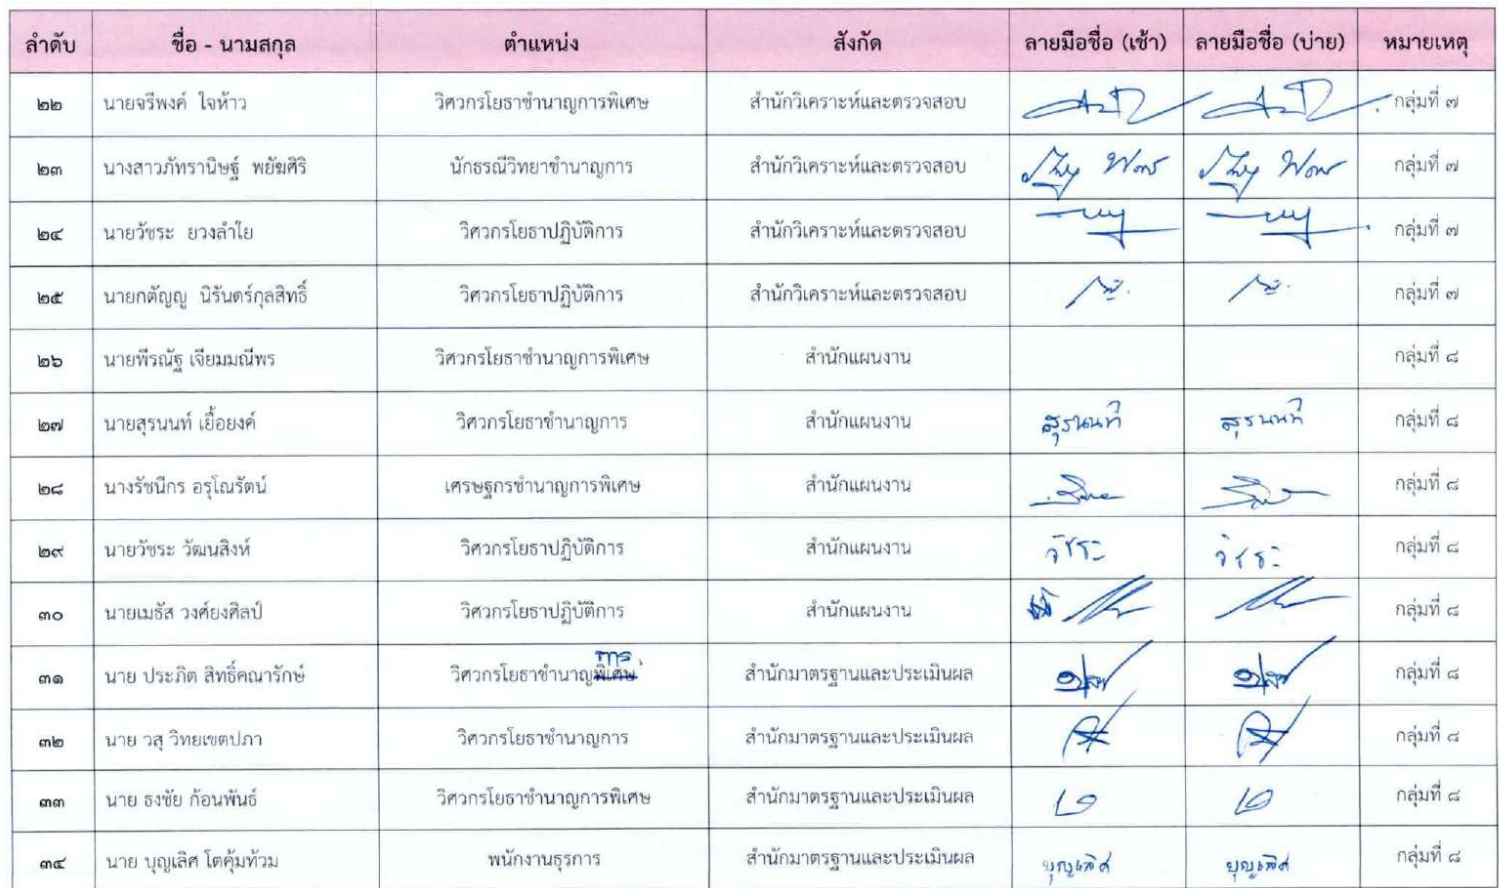 ลำดับ ชื่อ - นามสกุล ตำแหน่ง สังกัด ลายมือชื่อ (เช้า) ลายมือชื่อ (บ่าย) หมายเหตุ
๒๒ นายจรีพงค์ ใจห้าว วิศวกรโยธาชำนาญการพิเศษ สำนักวิเคราะห์และตรวจสอบ กลุ่มที่ ๗
๒๓ นางสาวภัทรานิษฐ์ พยัฆศิริ นักธรณีวิทยาชำนาญการ สำนักวิเคราะห์และตรวจสอบ กลุ่มที่ ๗
๒๔ นายวัชระ ยวงลำใย วิศวกรโยธาปฏิบัติการ สำนักวิเคราะห์และตรวจสอบ กลุ่มที่ ๗
๒๕ นายกตัญญู นิรันดร์กุลสิทธิ์ วิศวกรโยธาปฏิบัติการ สำนักวิเคราะห์และตรวจสอบ กลุ่มที่ ๗
๒๖ นายพีรณัฐ เจียมมณีพร วิศวกรโยธาชำนาญการพิเศษ สำนักแผนงาน กลุ่มที่ ๘
๒๗ นายสุรนนท์ เยื้อยงค์ วิศวกรโยธาชำนาญการ สำนักแผนงาน สุรนนท์ สุรนนท์ กลุ่มที่ ๘
๒๘ นางรัชนีกร อรุโณรัตน์ เศรษฐกรชำนาญการพิเศษ สำนักแผนงาน กลุ่มที่ ๘
๒๙ นายวัชระ วัฒนสิงห์ วิศวกรโยธาปฏิบัติการ สำนักแผนงาน วัชระ วัชระ กลุ่มที่ ๘
๓๐ นายเมธัส วงศ์ยงศิลป์ วิศวกรโยธาปฏิบัติการ สำนักแผนงาน กลุ่มที่ ๘
๓๑ นาย ประภิต สิทธิ์คณารักษ์ วิศวกรโยธาชำนาญพิเศษ การ สำนักมาตรฐานและประเมินผล กลุ่มที่ ๘
๓๒ นาย วสุ วิทยเขตปภา วิศวกรโยธาชำนาญการ สำนักมาตรฐานและประเมินผล กลุ่มที่ ๘
๓๓ นาย ธงชัย ก้อนพันธ์ วิศวกรโยธาชำนาญการพิเศษ สำนักมาตรฐานและประเมินผล กลุ่มที่ ๘
๓๔ นาย บุญเลิศ โตคุ้มท้วม พนักงานธุรการ สำนักมาตรฐานและประเมินผล บุญเลิศ บุญเลิศ กลุ่มที่ ๘